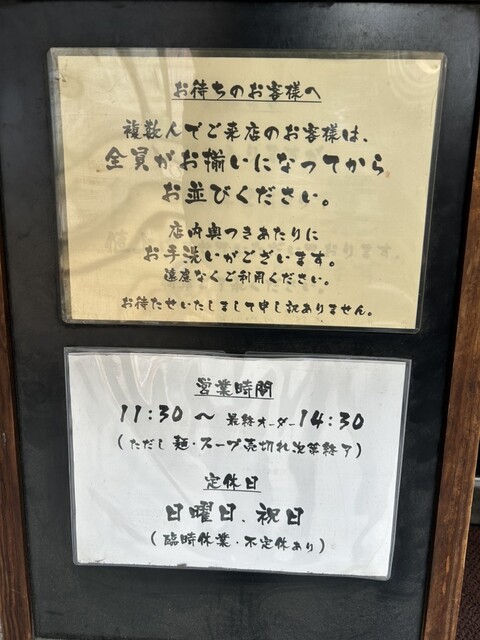 お待ちのお客様へ
複数人でご来店のお客様は、
全員がお揃いになってから
お並びください。
店内奥つきあたりに
お手洗いがございます。
遠慮なくご利用ください。
お待たせいたしまして申し訳ありません。
営業時間
11:30 〜 最終オーダー 14:30
(ただし 麺・スープ売切れ次第終了)
定休日
日曜日、祝日
(臨時休業・不定休あり)